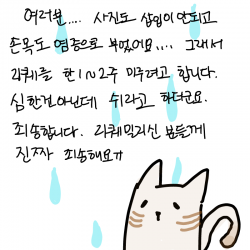 여러분.... 사진도 삽입이 안되고
손목도 염증으로 부었어요.... 그래서
리퀘를 한 1~2주 미루려고 합니다.
심한건아닌데 쉬라고 하더군요.
죄송합니다. 리퀘믹기신 분들께
진짜 죄송해요ㅠ